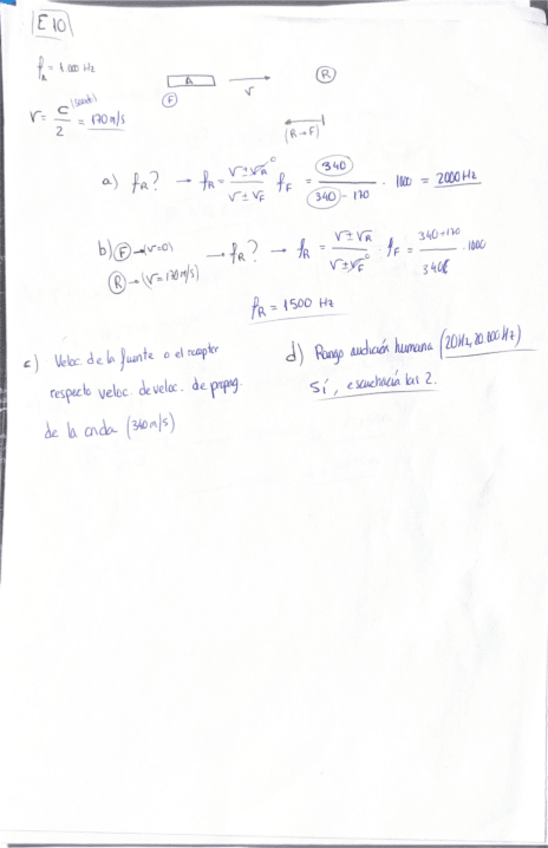 E10
f_A = 1.000 Hz
A
F
v
R
v = c (sonido) / 2 = 170 m/s
(R→F)
a) f_R? → f_R = (v ± v_R⁰) / (v ± v_F) f_F = 340 / (340 - 170) · 1000 = 2000 Hz
b) F → (v=0) → f_R? → f_R = (v ± v_R) / (v ± v_F⁰) · f_F = (340+170) / 340 · 1000
R → (v = 170 m/s)
f_R = 1500 Hz
c) Veloc. de la fuente o el receptor
respecto veloc. de veloc. de propag.
de la onda (340 m/s)
d) Rango audición humana (20Hz, 20.000Hz)
Sí, escucharía las 2.